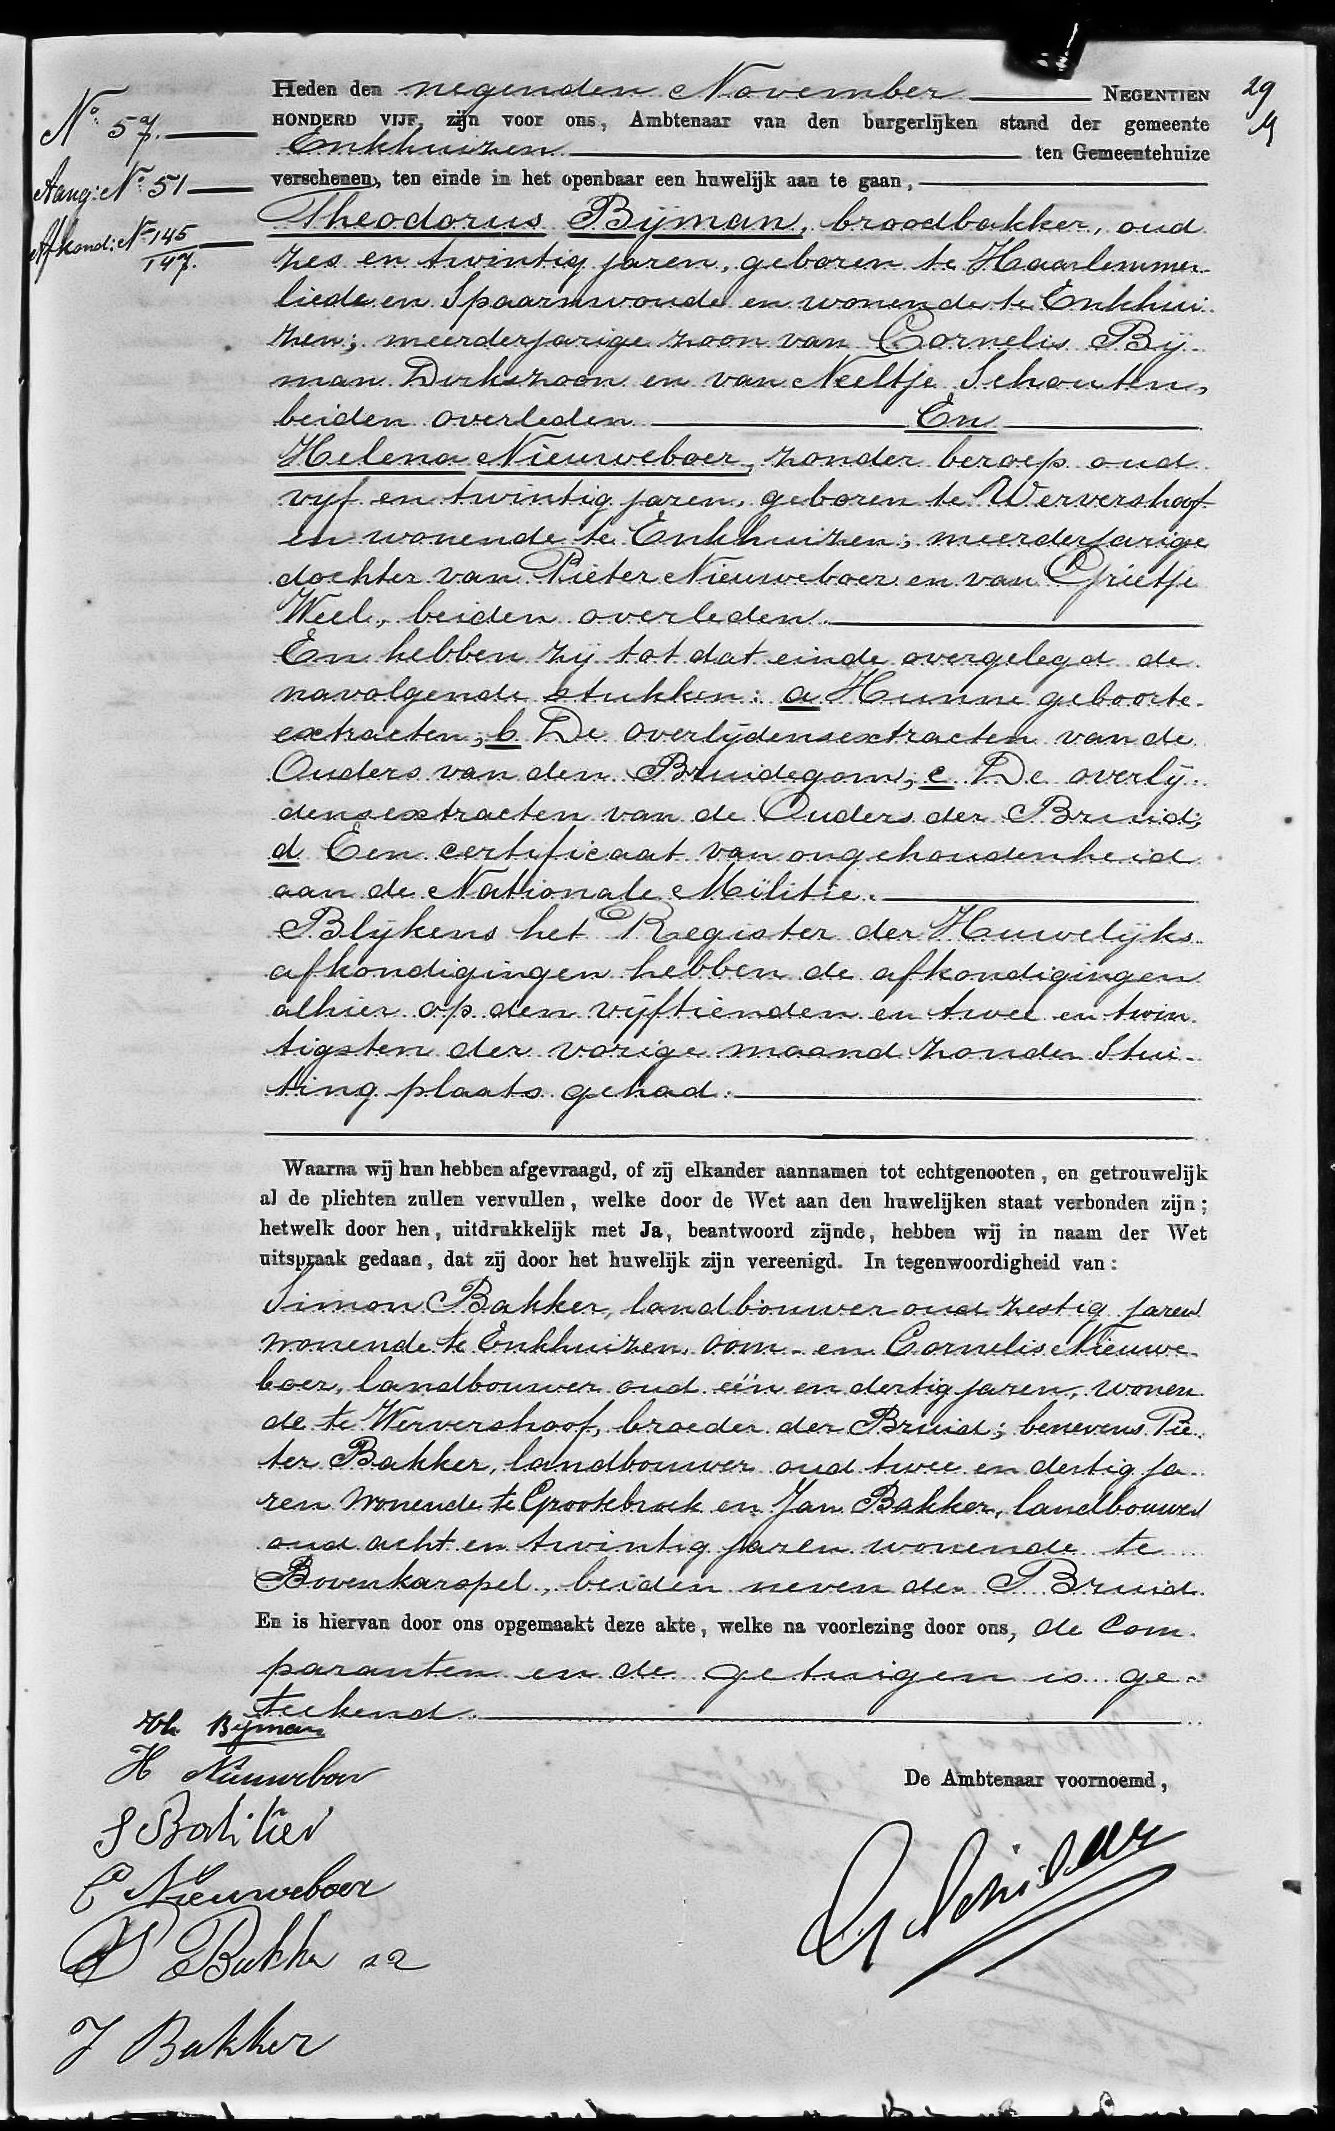 29
Nº 57.
Aang: Nº 51
Afkond: Nº 145
147.
Heden den negenden November NEGENTIEN
HONDERD VIJF, zijn voor ons, Ambtenaar van den burgerlijken stand der gemeente
Enkhuizen ten Gemeentehuize
verschenen, ten einde in het openbaar een huwelijk aan te gaan,
Theodorus Bijman, broodbakker, oud
zes en twintig jaren, geboren te Haarlemmer-
liede en Spaarnwoude en wonende te Enkhui-
zen; meerderjarige zoon van Cornelis Bij-
man Dirkszoon en van Neeltje Schouten,
beiden overleden En
Helena Nieuweboer, zonder beroep oud
vijf en twintig jaren, geboren te Wervershoof
en wonende te Enkhuizen; meerderjarige
dochter van Pieter Nieuweboer en van Grietje
Weel, beiden overleden.
En hebben zij tot dat einde overgelegd de
navolgende stukken: a Hunne geboorte-
extracten; b De overlijdensextracten van de
Ouders van den Bruidegom; c De overlij-
densextracten van de Ouders der Bruid;
d Een certificaat van ongehoudenheid
aan de Nationale Militie.
Blijkens het Register der Huwelijks-
afkondigingen hebben de afkondigingen
alhier op den vijftienden en twee en twin-
tigsten der vorige maand zonder Stui-
ting plaats gehad.
Waarna wij hun hebben afgevraagd, of zij elkander aannamen tot echtgenooten, en getrouwelijk
al de plichten zullen vervullen, welke door de Wet aan den huwelijken staat verbonden zijn;
hetwelk door hen, uitdrukkelijk met Ja, beantwoord zijnde, hebben wij in naam der Wet
uitspraak gedaan, dat zij door het huwelijk zijn vereenigd. In tegenwoordigheid van:
Simon Bakker, landbouwer oud zestig jaren
wonende te Enkhuizen, oom- en Cornelis Nieuwe-
boer, landbouwer oud één en dertig jaren, wonen-
de te Wervershoof, broeder der Bruid; benevens Pie-
ter Bakker, landbouwer oud twee en dertig ja-
ren wonende te Grootebroek en Jan Bakker, landbouwer
oud acht en twintig jaren wonende te
Bovenkarspel, beiden neven der Bruid.
En is hiervan door ons opgemaakt deze akte, welke na voorlezing door ons, de Com-
paranten en de getuigen is ge-
teekend
Th Bijman
H Nieuweboer
De Ambtenaar voornoemd,
S Bakker
C Nieuweboer
P Bakker
J Bakker